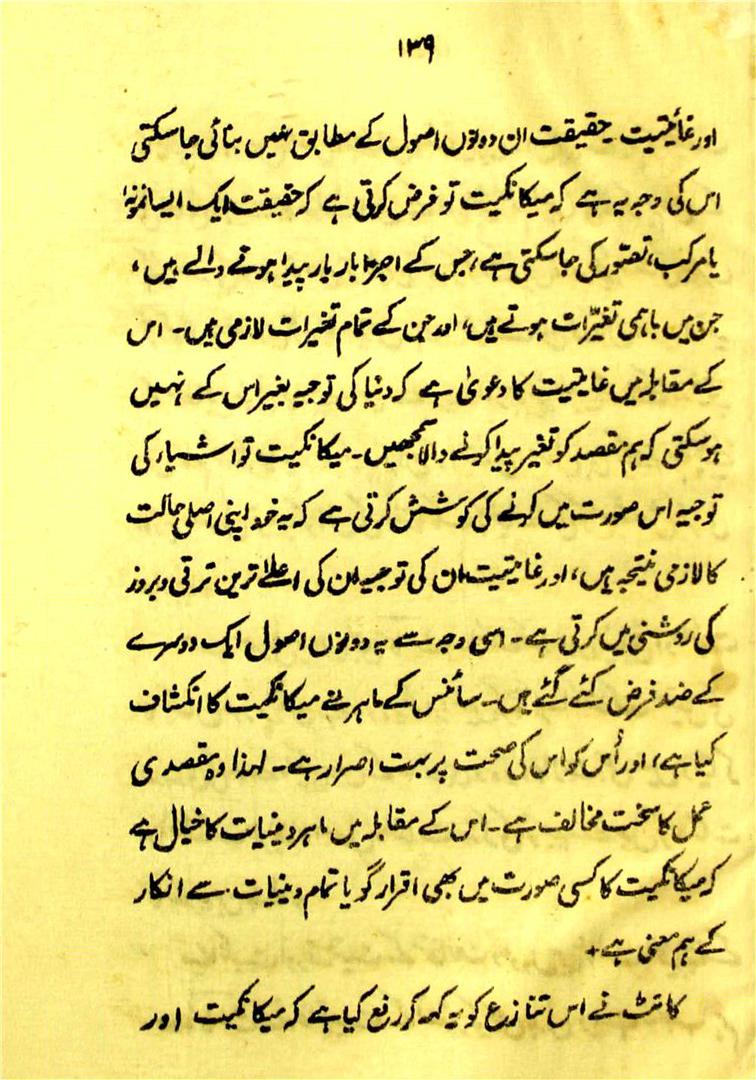 ۱۳۹
اور غائیتیت ۔ حقیقت ان دونوں اصول کے مطابق نہیں بنائی جاسکتی
اس کی وجہ یہ ہے کہ میکانکیت تو فرض کرتی ہے کہ حقیقت ایک ایسا نمونہ
یا مرکب، تصور کی جاسکتی ہے، جس کے اجزا بار بار پیدا ہوتے والے ہیں،
جن میں باہمی تغیّرات ہوتے ہیں، اور جن کے تمام تغیرات لازمی ہیں۔ اس
کے مقابلہ میں غایتیت کا دعویٰ ہے کہ دنیا کی توجیہ بغیر اس کے نہیں
ہوسکتی کہ ہم مقصد کو تغیر پیدا کرنے والا سمجھیں۔ میکانکیت تو اشیاء کی
توجیہ اس صورت میں کرنے کی کوشش کرتی ہے کہ یہ خود اپنی اصلی حالت
کا لازمی نتیجہ ہیں، اور غایتیت ان کی توجیہ ان کی اعلےٰ ترین ترقی و بروز
کی روشنی میں کرتی ہے۔ اسی وجہ سے یہ دونوں اصول ایک دوسرے
کے ضد فرض کئے گئے ہیں۔ سائنس کے ماہر نے میکانکیت کا انکشاف
کیا ہے، اور اُس کو اس کی صحت پر بہت اصرار ہے۔ لہذا وہ مقصدی
عمل کا سخت مخالف ہے۔ اس کے مقابلہ میں ماہر دینیات کا خیال ہے
کہ میکانکیت کا کسی صورت میں بھی اقرار گویا تمام دینیات سے انکار
کے ہم معنی ہے۔
کانٹ نے اس تنازع کو یہ کہہ کر رفع کیا ہے کہ میکانکیت اور